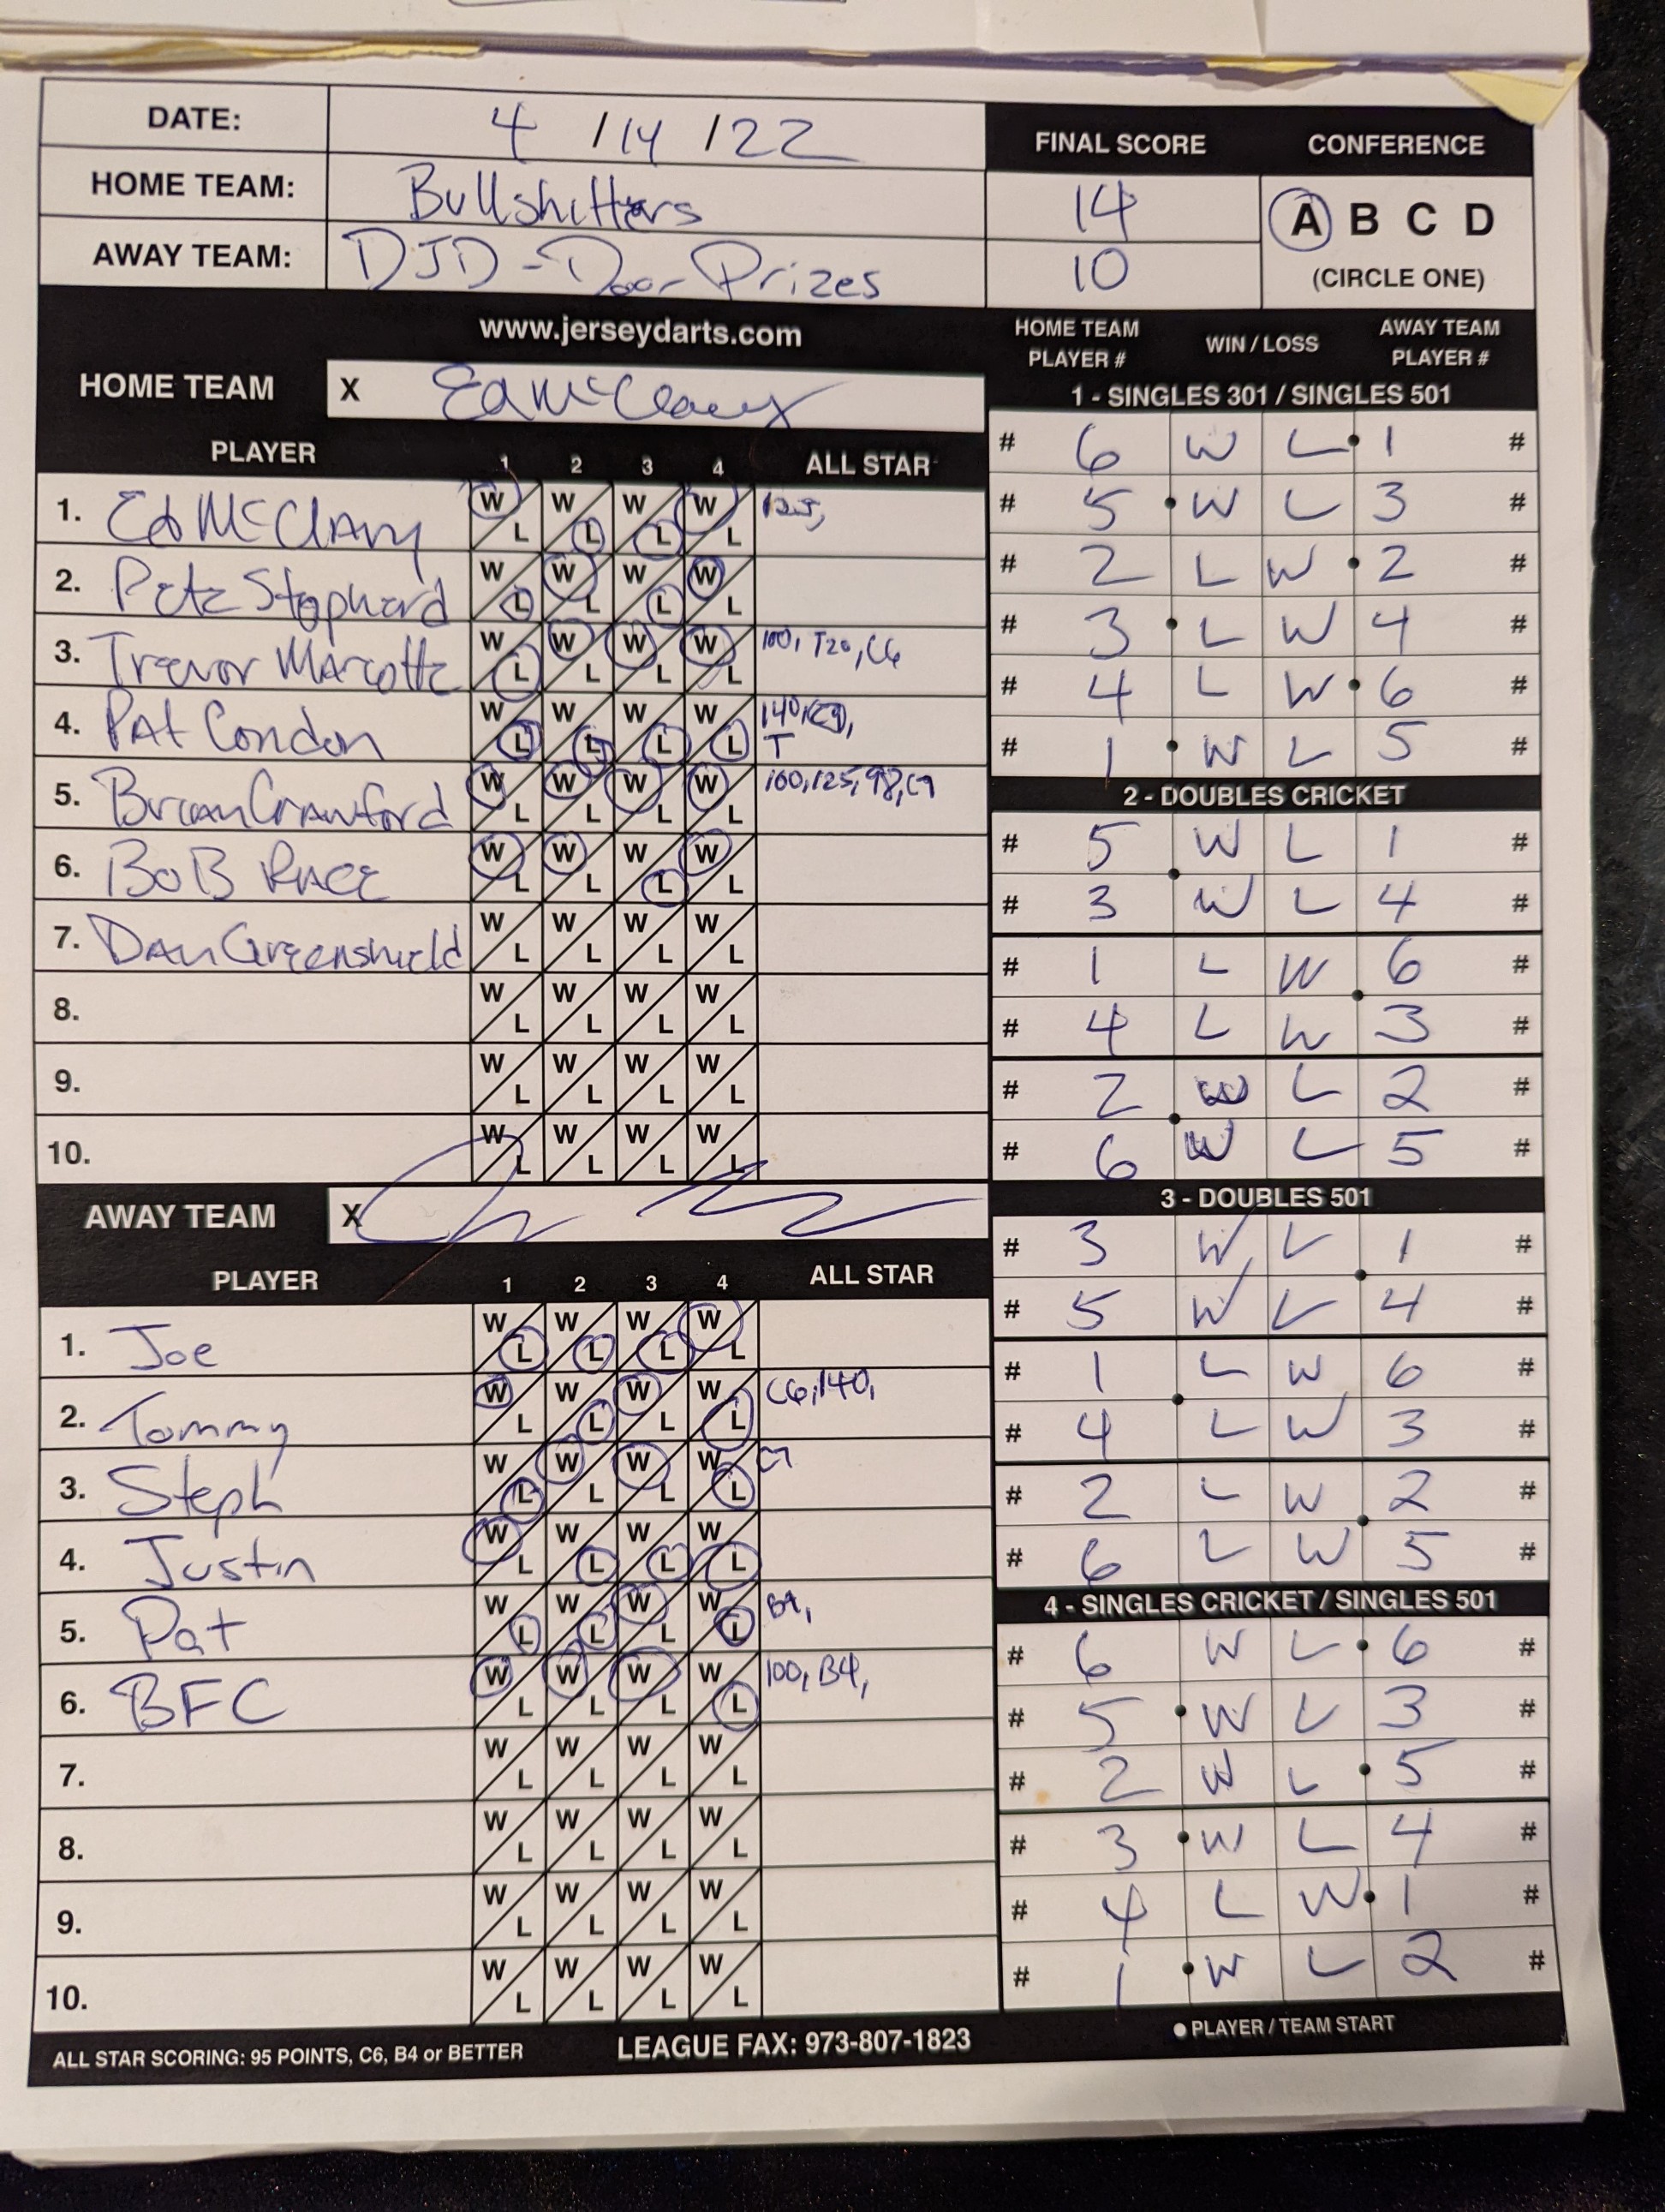 DATE: 4 / 14 / 22
HOME TEAM: Bullshitters
AWAY TEAM: DJD - Door Prizes
FINAL SCORE CONFERENCE
14
10
A B C D
(CIRCLE ONE)
www.jerseydarts.com
HOME TEAM X Ed McClary
PLAYER 1 2 3 4 ALL STAR
1. Ed McClary W L W L W L W L 125,
2. Pete Stophard W L W L W L W L
3. Trevor Marcotte W L W L W L W L 100, T20, C6
4. Pat Condon W L W L W L W L 140, C9,
T
5. Brian Crawford W L W L W L W L 100, 125, 98, C7
6. BoB Race W L W L W L W L
7. Dan Greenshield W L W L W L W L
8. W L W L W L W L
9. W L W L W L W L
10. W L W L W L W L
AWAY TEAM X
PLAYER 1 2 3 4 ALL STAR
1. Joe W L W L W L W L
2. Tommy W L W L W L W L C6, 140,
3. Steph W L W L W L W L C7
4. Justin W L W L W L W L
5. Pat W L W L W L W L B4,
6. BFC W L W L W L W L 100, B4,
7. W L W L W L W L
8. W L W L W L W L
9. W L W L W L W L
10. W L W L W L W L
ALL STAR SCORING: 95 POINTS, C6, B4 or BETTER
LEAGUE FAX: 973-807-1823
HOME TEAM PLAYER # WIN / LOSS AWAY TEAM PLAYER #
1 - SINGLES 301 / SINGLES 501
# 6 W L 1 #
# 5 W L 3 #
# 2 L W 2 #
# 3 L W 4 #
# 4 L W 6 #
# 1 W L 5 #
2 - DOUBLES CRICKET
# 5 W L 1 #
# 3 W L 4 #
# 1 L W 6 #
# 4 L W 3 #
# 2 W L 2 #
# 6 W L 5 #
3 - DOUBLES 501
# 3 W L 1 #
# 5 W L 4 #
# 1 L W 6 #
# 4 L W 3 #
# 2 L W 2 #
# 6 L W 5 #
4 - SINGLES CRICKET / SINGLES 501
# 6 W L 6 #
# 5 W L 3 #
# 2 W L 5 #
# 3 W L 4 #
# 4 L W 1 #
# 1 W L 2 #
PLAYER / TEAM START